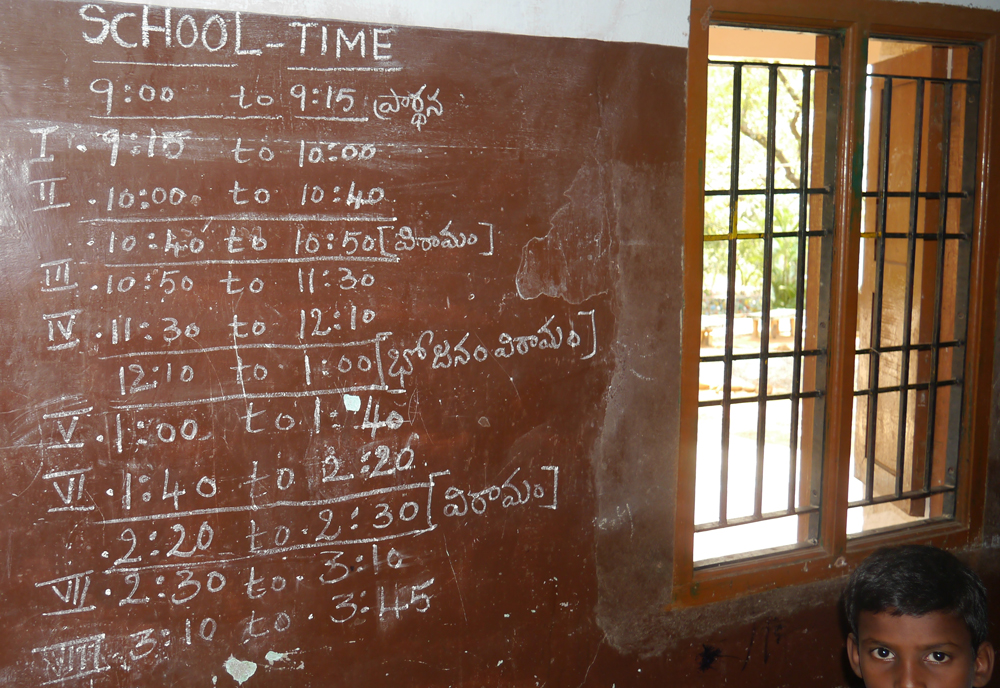 SCHOOL - TIME
9:00 to 9:15 ప్రార్థన
I . 9:15 to 10:00
II . 10:00 to 10:40
10:40 to 10:50 [విరామం]
III . 10:50 to 11:30
IV . 11:30 to 12:10
12:10 to 1:00 [భోజనం విరామం]
V . 1:00 to 1:40
VI . 1:40 to 2:20
. 2:20 to . 2:30 [విరామం]
VII . 2:30 to . 3:10
VIII . 3:10 to . 3:45